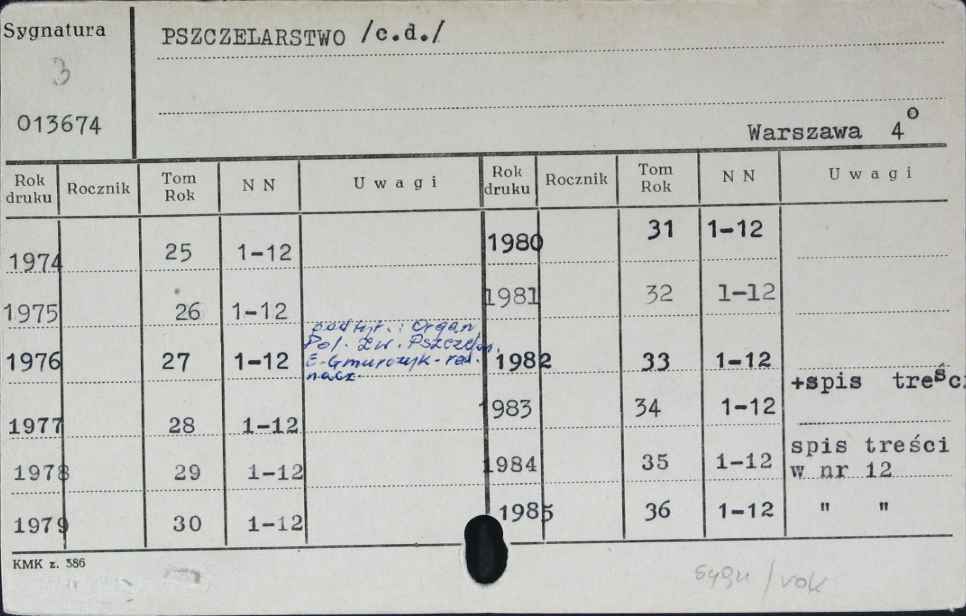 Sygnatura
PSZCZELARSTWO /c.d./
3
013674
Warszawa 4°
Rok druku Rocznik Tom Rok N N Uwagi Rok druku Rocznik Tom Rok N N Uwagi
1974 25 1-12 1980 31 1-12
1975 26 1-12 1981 32 1-12
podtyt.: Organ
Pol. Zw. Pszczel.
1976 27 1-12 E. Gmurczyk - red. 1982 33 1-12
nacz.
+spis treści
1977 28 1-12 1983 34 1-12
1978 29 1-12 1984 35 1-12 spis treści
w nr 12
1979 30 1-12 1985 36 1-12 " "
KMK z. 386
sygn / rok